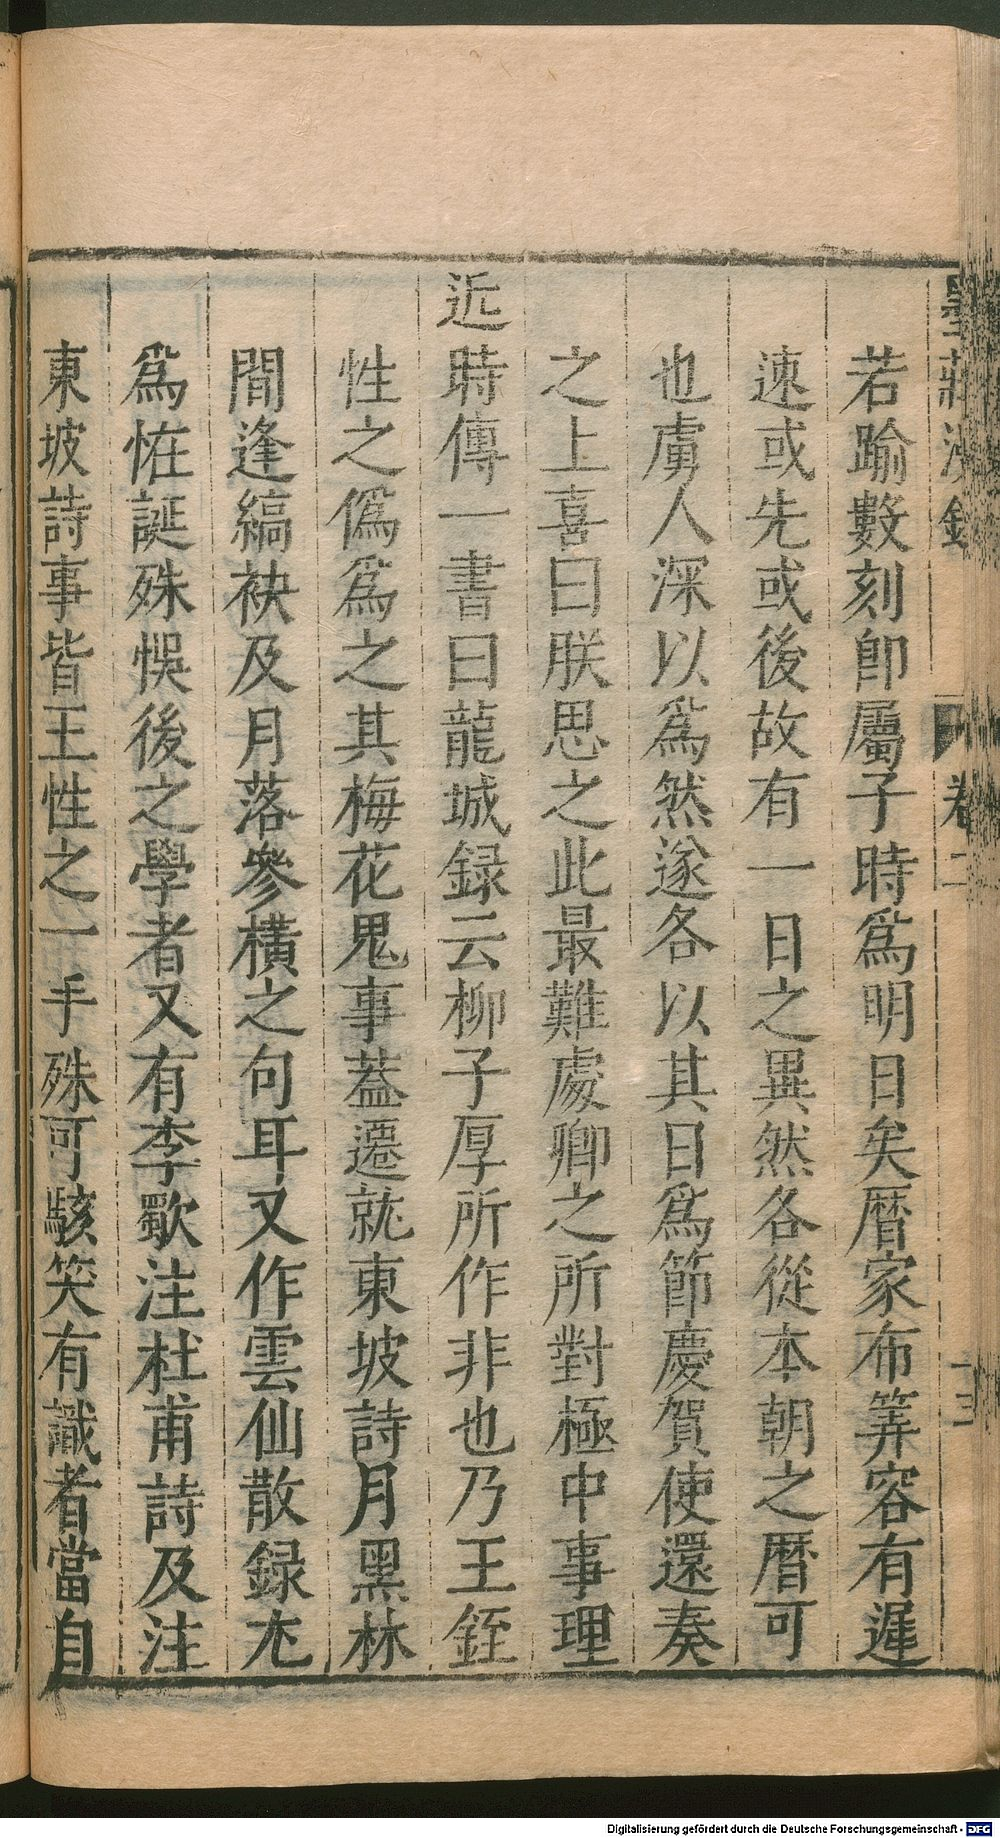 墨莊漫錄
卷二
十三
若踰數刻卽屬子時爲明日矣曆家布筭容有遲
速或先或後故有一日之異然各從本朝之曆可
也虜人深以爲然遂各以其日爲節慶賀使還奏
之上喜曰朕思之此最難處卿之所對極中事理
近時傳一書曰龍城録云柳子厚所作非也乃王銍
性之僞爲之其梅花鬼事蓋遷就東坡詩月黑林
間逢縞袂及月落參橫之句耳又作雲仙散録尤
爲恠誕殊悞後之學者又有李歜注杜甫詩及注
東坡詩事皆王性之一手殊可駭笑有識者當自
Digitalisierung gefördert durch die Deutsche Forschungsgemeinschaft - DFG